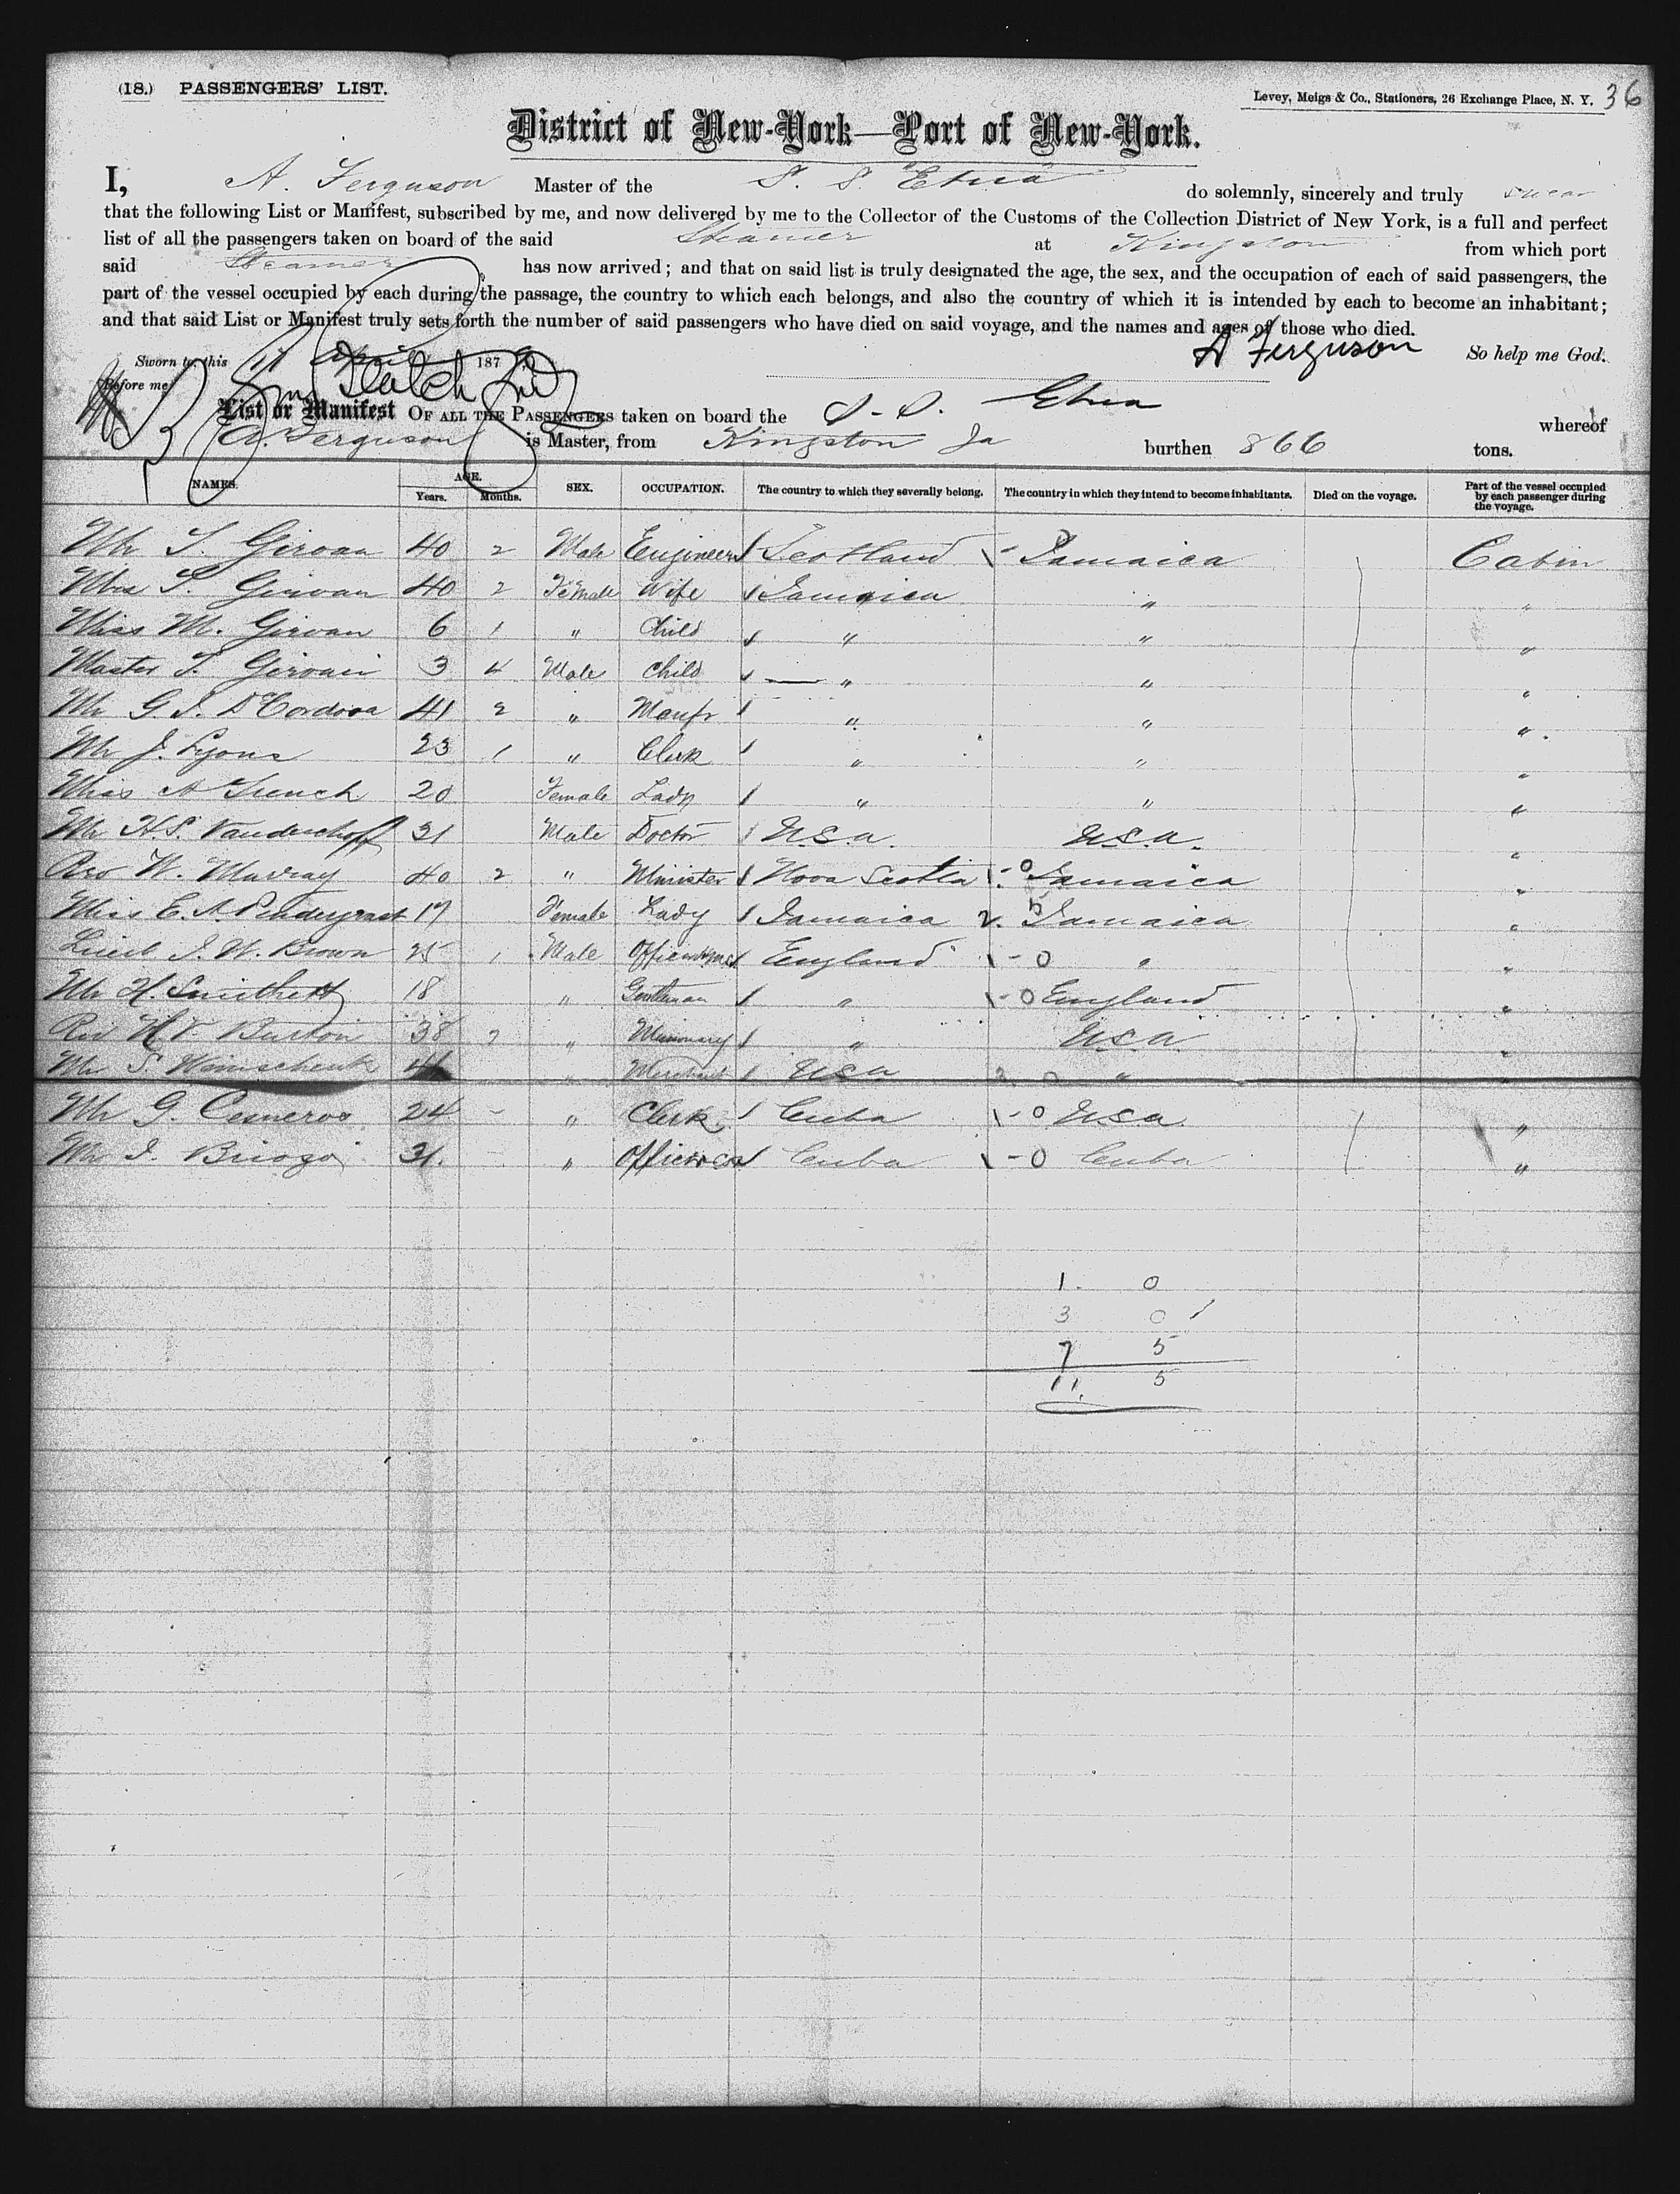 (18.) PASSENGERS' LIST.
Levey, Meigs & Co., Stationers, 26 Exchange Place, N. Y. 36
District of New-York—Port of New-York.
I, A. Ferguson Master of the S. S. "Etna" do solemnly, sincerely and truly swear
that the following List or Manifest, subscribed by me, and now delivered by me to the Collector of the Customs of the Collection District of New York, is a full and perfect
list of all the passengers taken on board of the said Steamer at Kingston from which port
said Steamer has now arrived; and that on said list is truly designated the age, the sex, and the occupation of each of said passengers, the
part of the vessel occupied by each during the passage, the country to which each belongs, and also the country of which it is intended by each to become an inhabitant;
and that said List or Manifest truly sets forth the number of said passengers who have died on said voyage, and the names and ages of those who died.
Sworn to this 17 April 187 A Ferguson So help me God.
Before me
List or Manifest OF ALL THE PASSENGERS taken on board the S. S. Etna whereof
A. Ferguson is Master, from Kingston Ja burthen 866 tons.
NAMES. AGE. Years. Months. SEX. OCCUPATION. The country to which they severally belong. The country in which they intend to become inhabitants. Died on the voyage. Part of the vessel occupied by each passenger during the voyage.
Mr T. Girvan 40 2 Male Engineer Scotland Jamaica Cabin
Mrs T. Girvan 40 2 Female Wife Jamaica " "
Miss M. Girvan 6 1 " Child " " "
Master T. Girvan 3 4 Male Child " " "
Mr G. J. DeCordova 41 2 " Manfr " " "
Mr J. Lyons 23 1 " Clerk " " "
Miss A French 20 Female Lady " " "
Mr H S. Vanderhoff 31 Male Doctor U.S.a. U.S.a. "
Rev W. Murray 40 2 " Minister Nova Scotia 1-0 Jamaica "
Miss E. A. Pendergrast 17 Female Lady Jamaica 2. 5 Jamaica "
Lieut J. W. Brown 25 1 Male Officer England 1-0 " "
Mr H. Smithett 18 " Gentleman " 1-0 England "
Rev H. V. Burton 38 2 " Missionary " U.S.a "
Mr S. " Merchant U.S.a " "
Mr G. Cisneros 24 - " Clerk Cuba 1-0 U.S.a "
Mr J. 31. " Officer Cuba 1-0 Cuba "
1. 0
3 0
7 5
11. 5